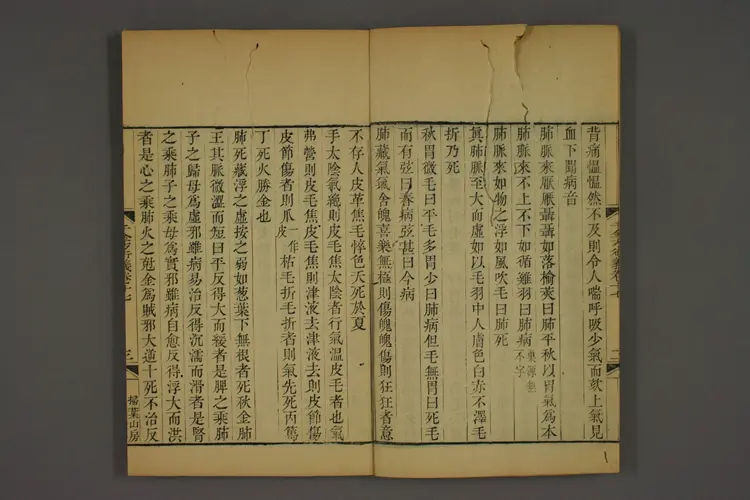 背痛慍慍然不及則令人喘呼吸少氣而欬上氣見
血下聞病音
肺脈來厭厭聶聶如落榆莢曰肺平秋以胃氣為本
肺脈來不上不下如循雞羽曰肺病巢源無不字
肺脈來如物之浮如風吹毛曰肺死
眞肺脈至大而虛如以毛羽中人膚色白赤不澤毛
折乃死
秋胃微毛曰平毛多胃少曰肺病但毛無胃曰死毛
而有弦曰春病弦甚曰今病
肺藏氣氣舍魄喜樂無極則傷魄魄傷則狂狂者意
二
不存人皮革焦毛悴色夭死於夏
手太陰氣絶則皮毛焦太陰者行氣溫皮毛者也氣
弗營則皮毛焦皮毛焦則津液去津液去則皮節傷
皮節傷者則爪一作皮枯毛折毛折者則氣先死丙篤
丁死火勝金也
肺死藏浮之虛按之弱如葱葉下無根者死秋金肺
王其脈微濇而短曰平反得大而緩者是脾之乘肺
子之歸母爲虛邪雖病易治反得沉濡而滑者是腎
之乘肺子之乘母爲實邪雖病自愈反得浮大而洪
者是心之乘肺火之尅金爲賊邪大逆十死不治反
千金方衍義卷十七
三
掃葉山房